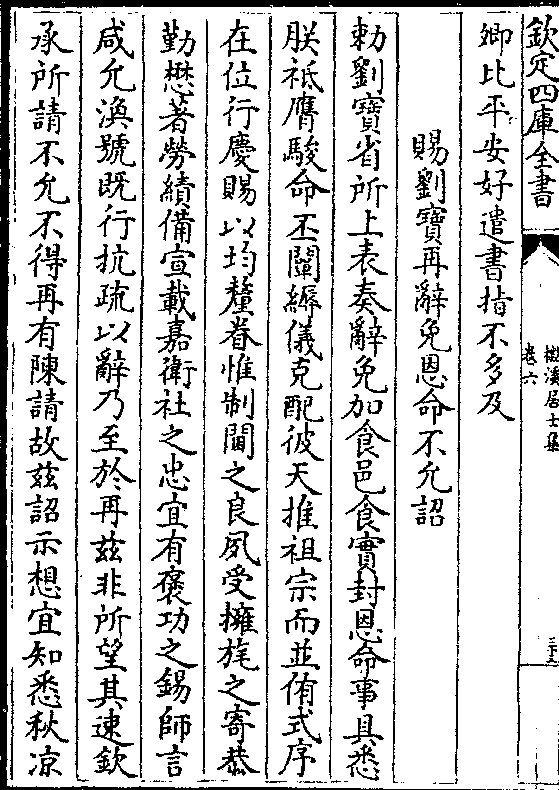 欽定四庫全書
檆溪居士集
卷六
三十三
卿比平安好遣書指不多及
賜劉寶再辭免恩命不允詔
勅劉寶省所上表奏辭免加食邑食實封恩命事具悉
朕祗膺駿命丕闡縟儀克配彼天推祖宗而並侑式序
在位行慶賜以均釐眷惟制閫之良夙受擁旄之寄恭
勤懋著勞績備宣載嘉衛社之忠宜有褒功之錫師言
咸允渙號既行抗疏以辭乃至於再茲非所望其速欽
承所請不允不得再有陳請故茲詔示想宜知悉秋凉